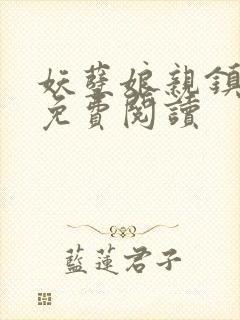 妖孽娘親鎮
免費閱讀
藍蓮君子